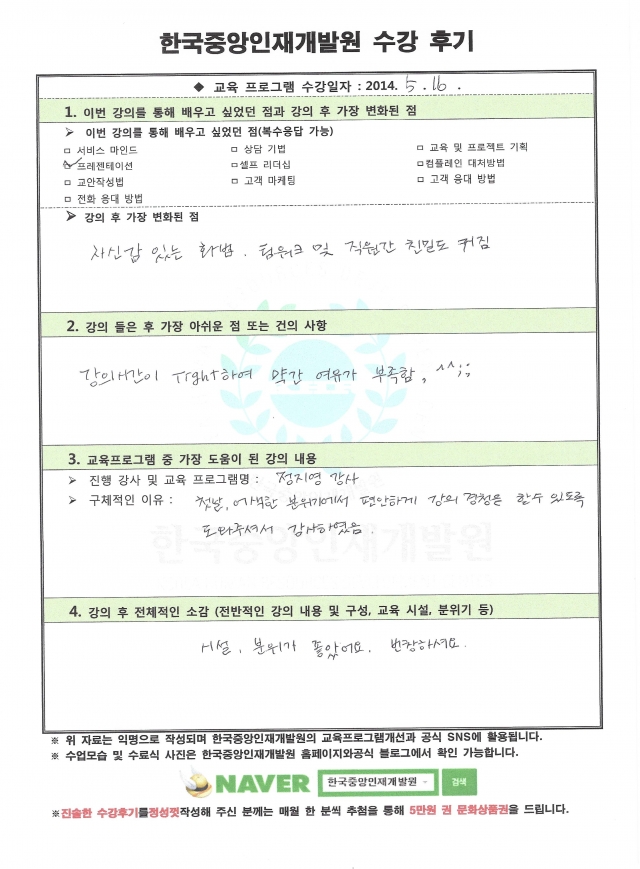 한국중앙인재개발원 수강 후기
◆ 교육 프로그램 수강일자 : 2014. 5 . 16 .
1. 이번 강의를 통해 배우고 싶었던 점과 강의 후 가장 변화된 점
➢ 이번 강의를 통해 배우고 싶었던 점(복수응답 가능)
□ 서비스 마인드 □ 상담 기법 □ 교육 및 프로젝트 기획
☑ 프레젠테이션 □셀프 리더십 □컴플레인 대처방법
□ 교안작성법 □ 고객 마케팅 □ 고객 응대 방법
□ 전화 응대 방법
➢ 강의 후 가장 변화된 점
자신감 있는 화법. 팀워크 및 직원간 친밀도 커짐
2. 강의 들은 후 가장 아쉬운 점 또는 건의 사항
강의시간이 Tight하여 약간 여유가 부족함, ^^;;
3. 교육프로그램 중 가장 도움이 된 강의 내용
➢ 진행 강사 및 교육 프로그램명 : 정지영 강사
➢ 구체적인 이유 : 첫날, 어색한 분위기에서 편안하게 강의 경청을 할수 있도록
도와주셔서 감사하였음.
한국중앙인재개발원
4. 강의 후 전체적인 소감 (전반적인 강의 내용 및 구성, 교육 시설, 분위기 등)
시설, 분위기 좋았어요. 번창하셔요.
※ 위 자료는 익명으로 작성되며 한국중앙인재개발원의 교육프로그램개선과 공식 SNS에 활용됩니다.
※ 수업모습 및 수료식 사진은 한국중앙인재개발원 홈페이지와공식 블로그에서 확인 가능합니다.
NAVER 한국중앙인재개발원 검색
※진솔한 수강후기를정성껏작성해 주신 분께는 매월 한 분씩 추첨을 통해 5만원 권 문화상품권을 드립니다.